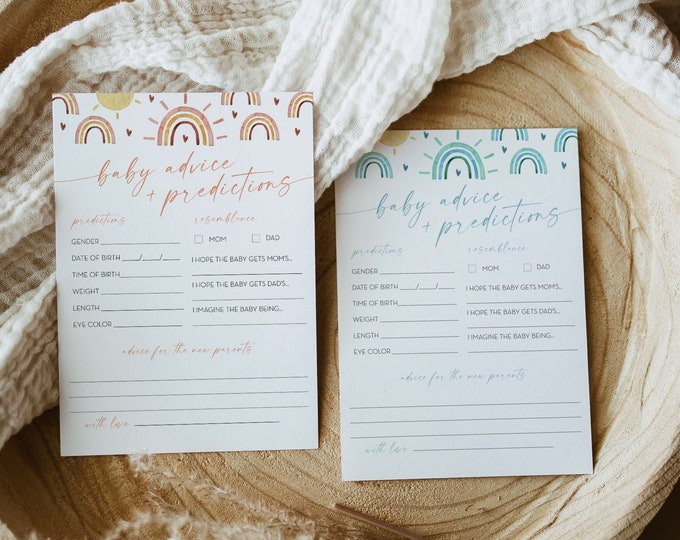 baby advice
+ predictions
predictions
GENDER
DATE OF BIRTH __/__/__
TIME OF BIRTH
WEIGHT
LENGTH
EYE COLOR
resemblance
MOM DAD
I HOPE THE BABY GETS MOM'S...
I HOPE THE BABY GETS DAD'S...
I IMAGINE THE BABY BEING...
advice for the new parents
with love
baby advice
+ predictions
predictions
GENDER
DATE OF BIRTH __/__/__
TIME OF BIRTH
WEIGHT
LENGTH
EYE COLOR
resemblance
MOM DAD
I HOPE THE BABY GETS MOM'S...
I HOPE THE BABY GETS DAD'S...
I IMAGINE THE BABY BEING...
advice for the new parents
with love